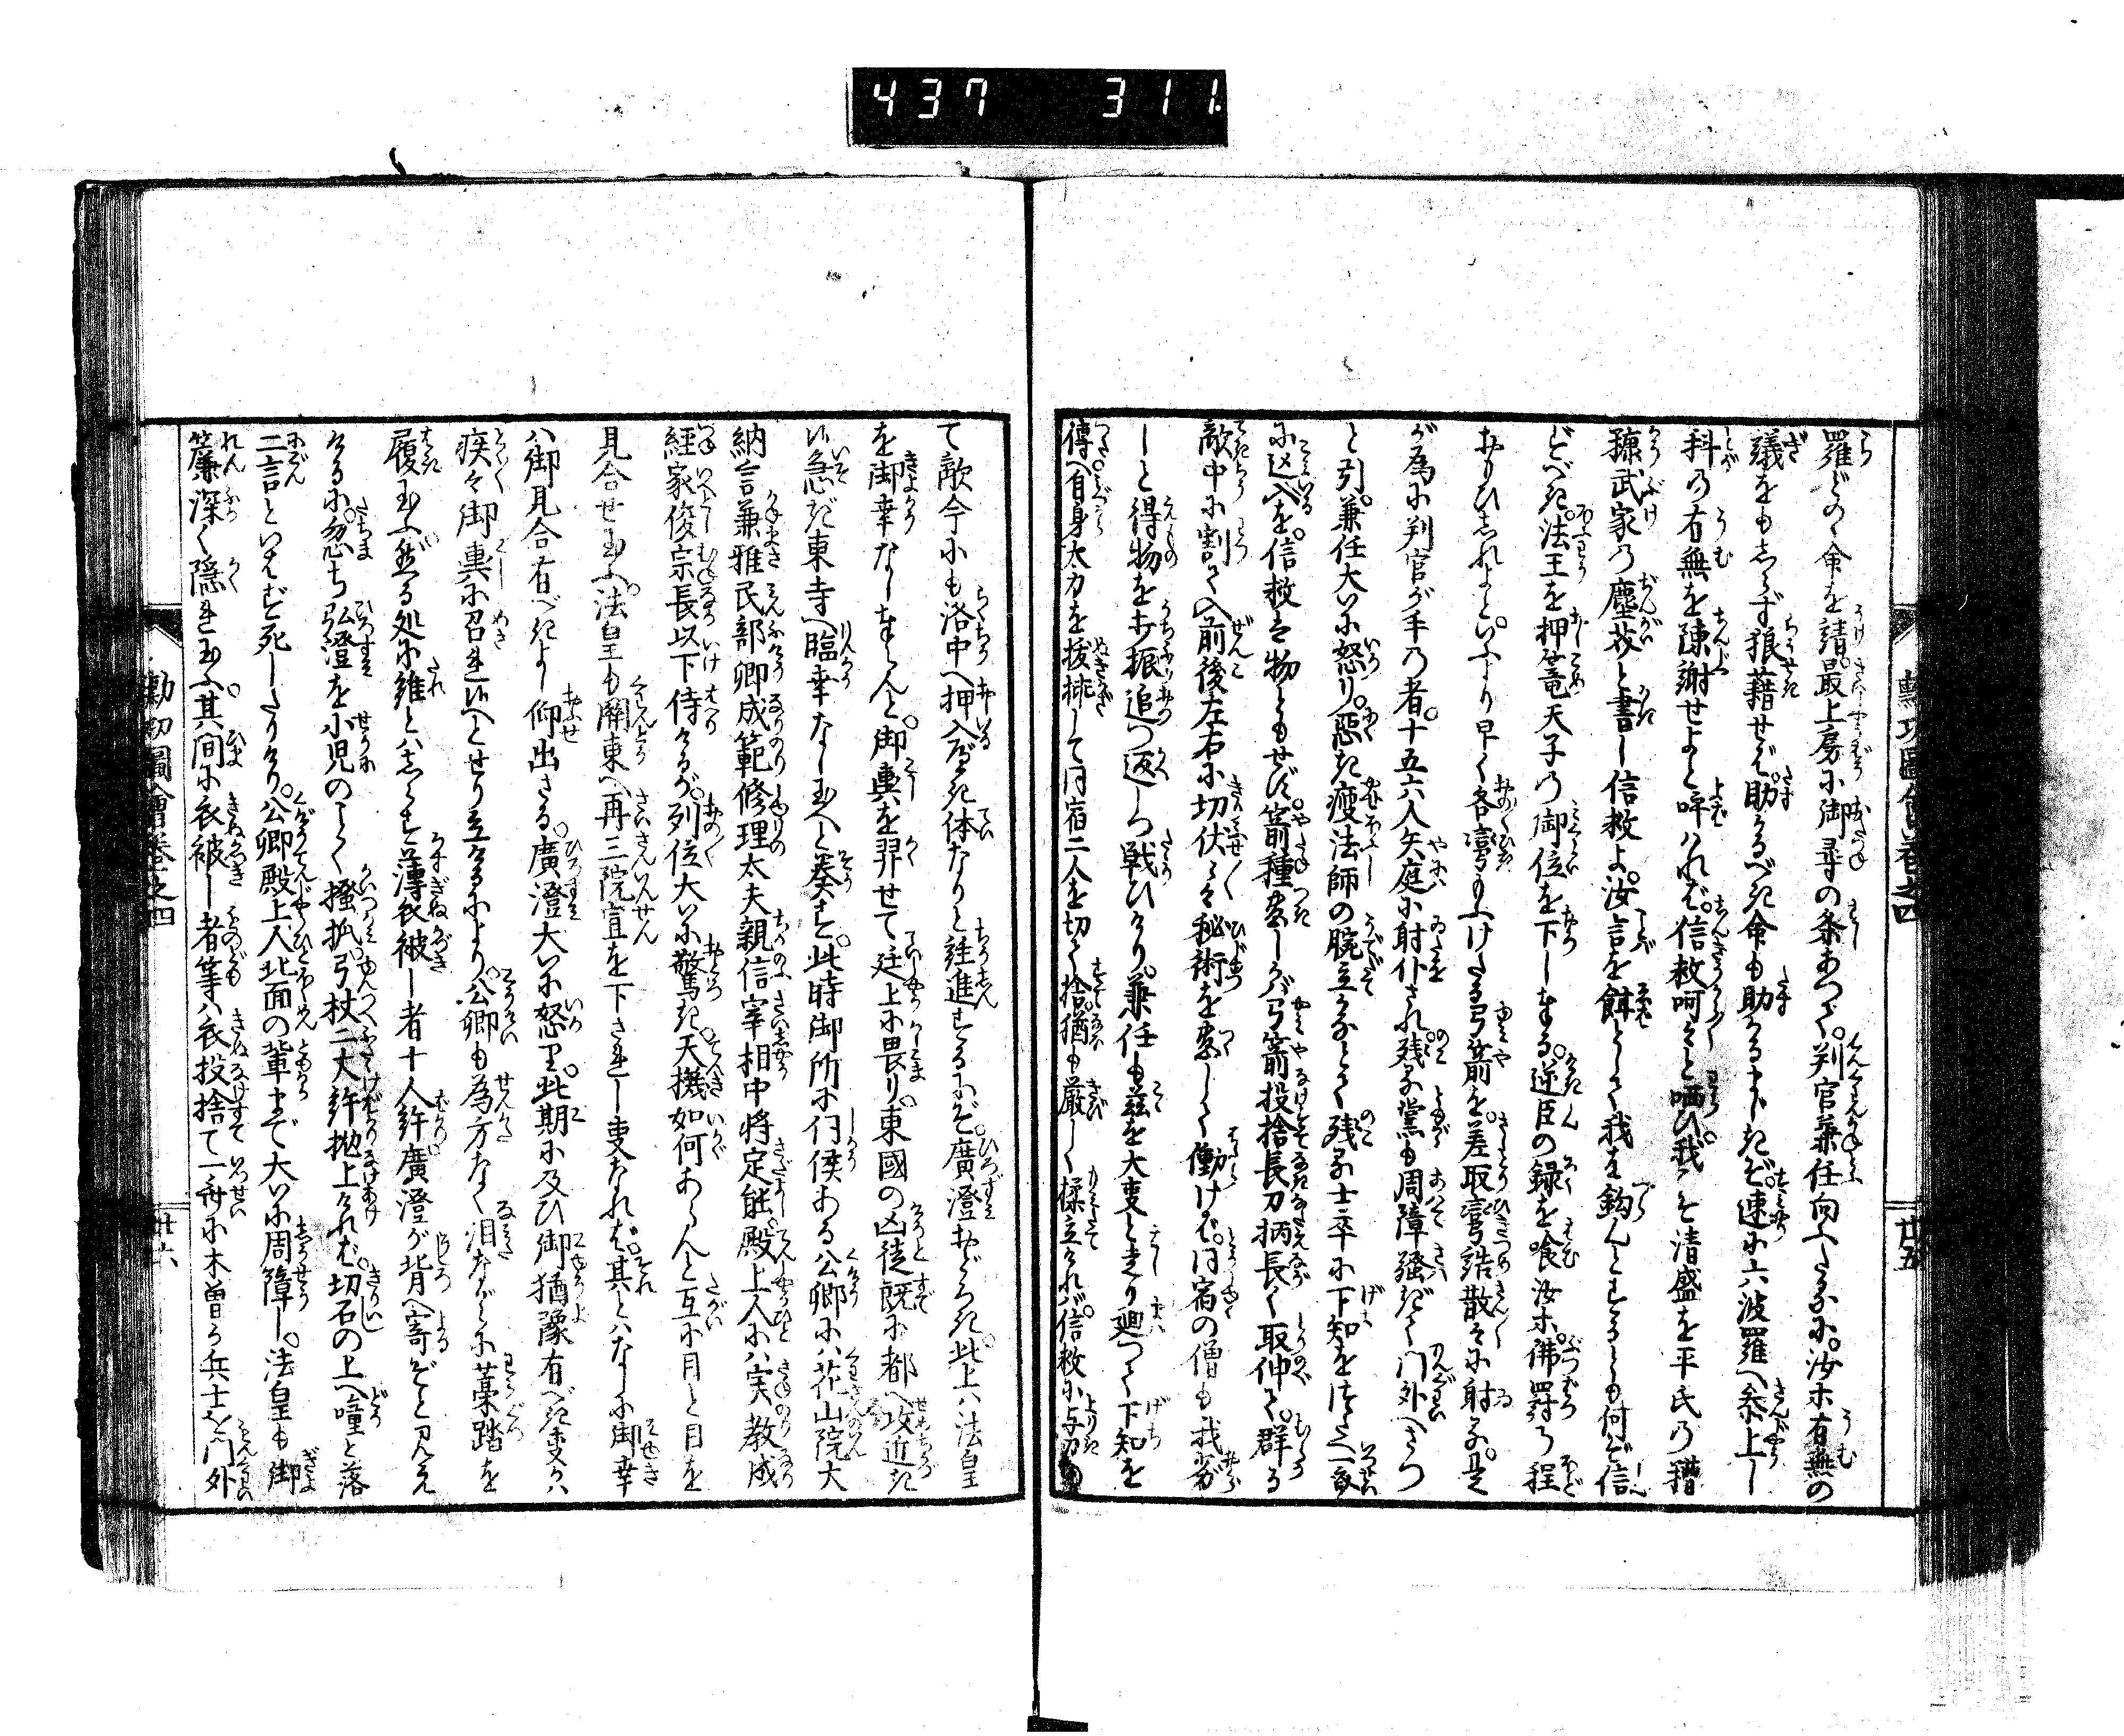 437 311
羅どのゝ命を請最上房に御尋の条あつて判官兼任向ふたるに汝ホ有無の
議をもしらず狼藉せば助るべき命も助るまじきぞ速に六波羅へ参上し
科の有無を陳謝せよと呼はれば信救呵々と哂ひ我こそ清盛を平氏の糟
糠武家の塵芥と書し信救よ汝言を餌として我を釣んとするとも何ぞ信
ずべき法王を押篭天子の御位を下し奉る逆臣の録を喰汝ホ佛罸の程
おもひしれよといふより早く各彎まふけたる弓箭を差取彎詰散々に射る是
が為に判官が手の者十五六人矢庭に射仆され残る黨も周障騒ぎて門外へさつ
と引兼任大いに怒り悪き痩法師の腕立かなとて残る士卒に下知をつたへ一同
に込入を信救は物ともせず箭種尽しかバ弓箭投捨長刀柄長く取伸て群る
敵中に割て入前後左右に切伏々々秘術を尽して働けば同宿の僧も我劣
じと得物を打振追つ返しつ戦ひけり兼任も茲を大事と走り廻つて下知を
傳へ自身太刀を抜挿して同宿二人を切て捨猶も厳しく揉立けれバ信救に与力
勲功圖會巻之四
廿五
て敵今にも洛中へ押入べき体なりと註進するにぞ廣澄おどろき此上ハ法皇
を御幸なし奉らんと御輿を舁せて廷上に畏り東國の凶徒既に都へ攻近き
候急ぎ東寺へ臨幸なし玉へと奏す此時御所に伺候ある公卿にハ花山院大
納言兼雅民部卿成範修理太夫親信宰相中将定能殿上人にハ実教成
經家俊宗長以下侍けるが列位大いに驚き天機如何あらんと互に目と目を
見合せ玉ふ法皇も關東へ再三院宣を下されし事なれば其とハなしに御幸
ハ御見合有べきよし仰出さる廣澄大いに怒り此期に及ひ御猶豫有べき事かハ
疾々御輿に召れ候へとせり立るにより公卿も為方なく泪ながら藁踏を
履玉ふ然る処に誰とハしらず薄衣被し者十人許廣澄が背へ寄ぞと見え
けるに忽ち弘澄を小児のごとく掻抓弓杖二丈許抛上けれバ切石の上へ噇と落
二言といはず死したりけり公卿殿上人北面の輩まで大いに周障し法皇も御
簾深く隠れ玉ふ其間に衣被し者等ハ衣投捨て一斉に木曽が兵士を門外
勲功圖會巻之四
廿六